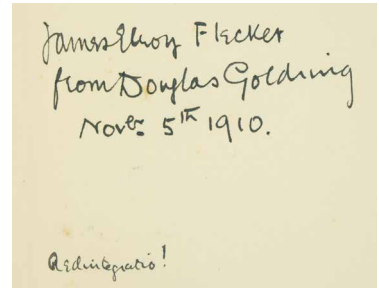 James Elroy Flecker
from Douglas Goldring
Novbr. 5th 1910.
Redintegratio!